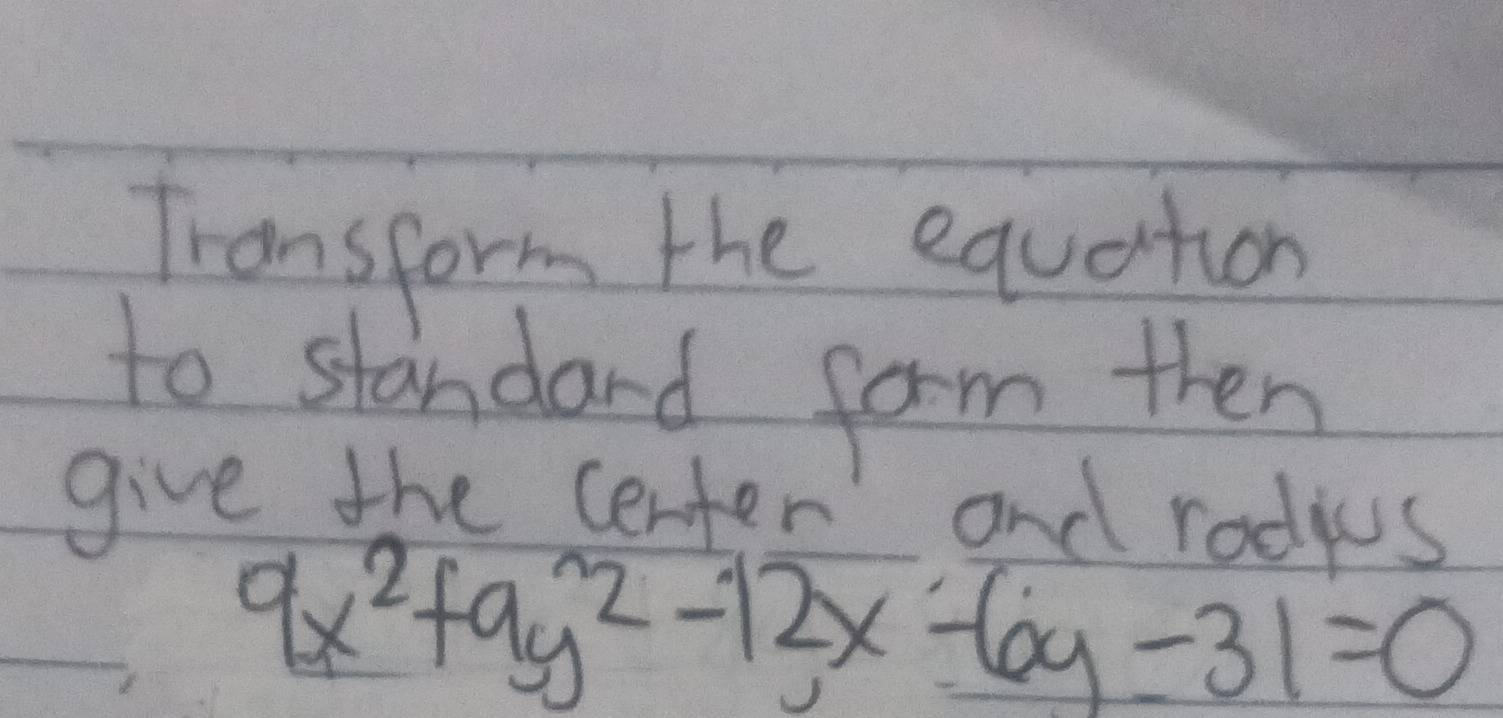 Transform the equation
to standard form then
give the center and radius
9x²+9y²-12x-6y-31=0